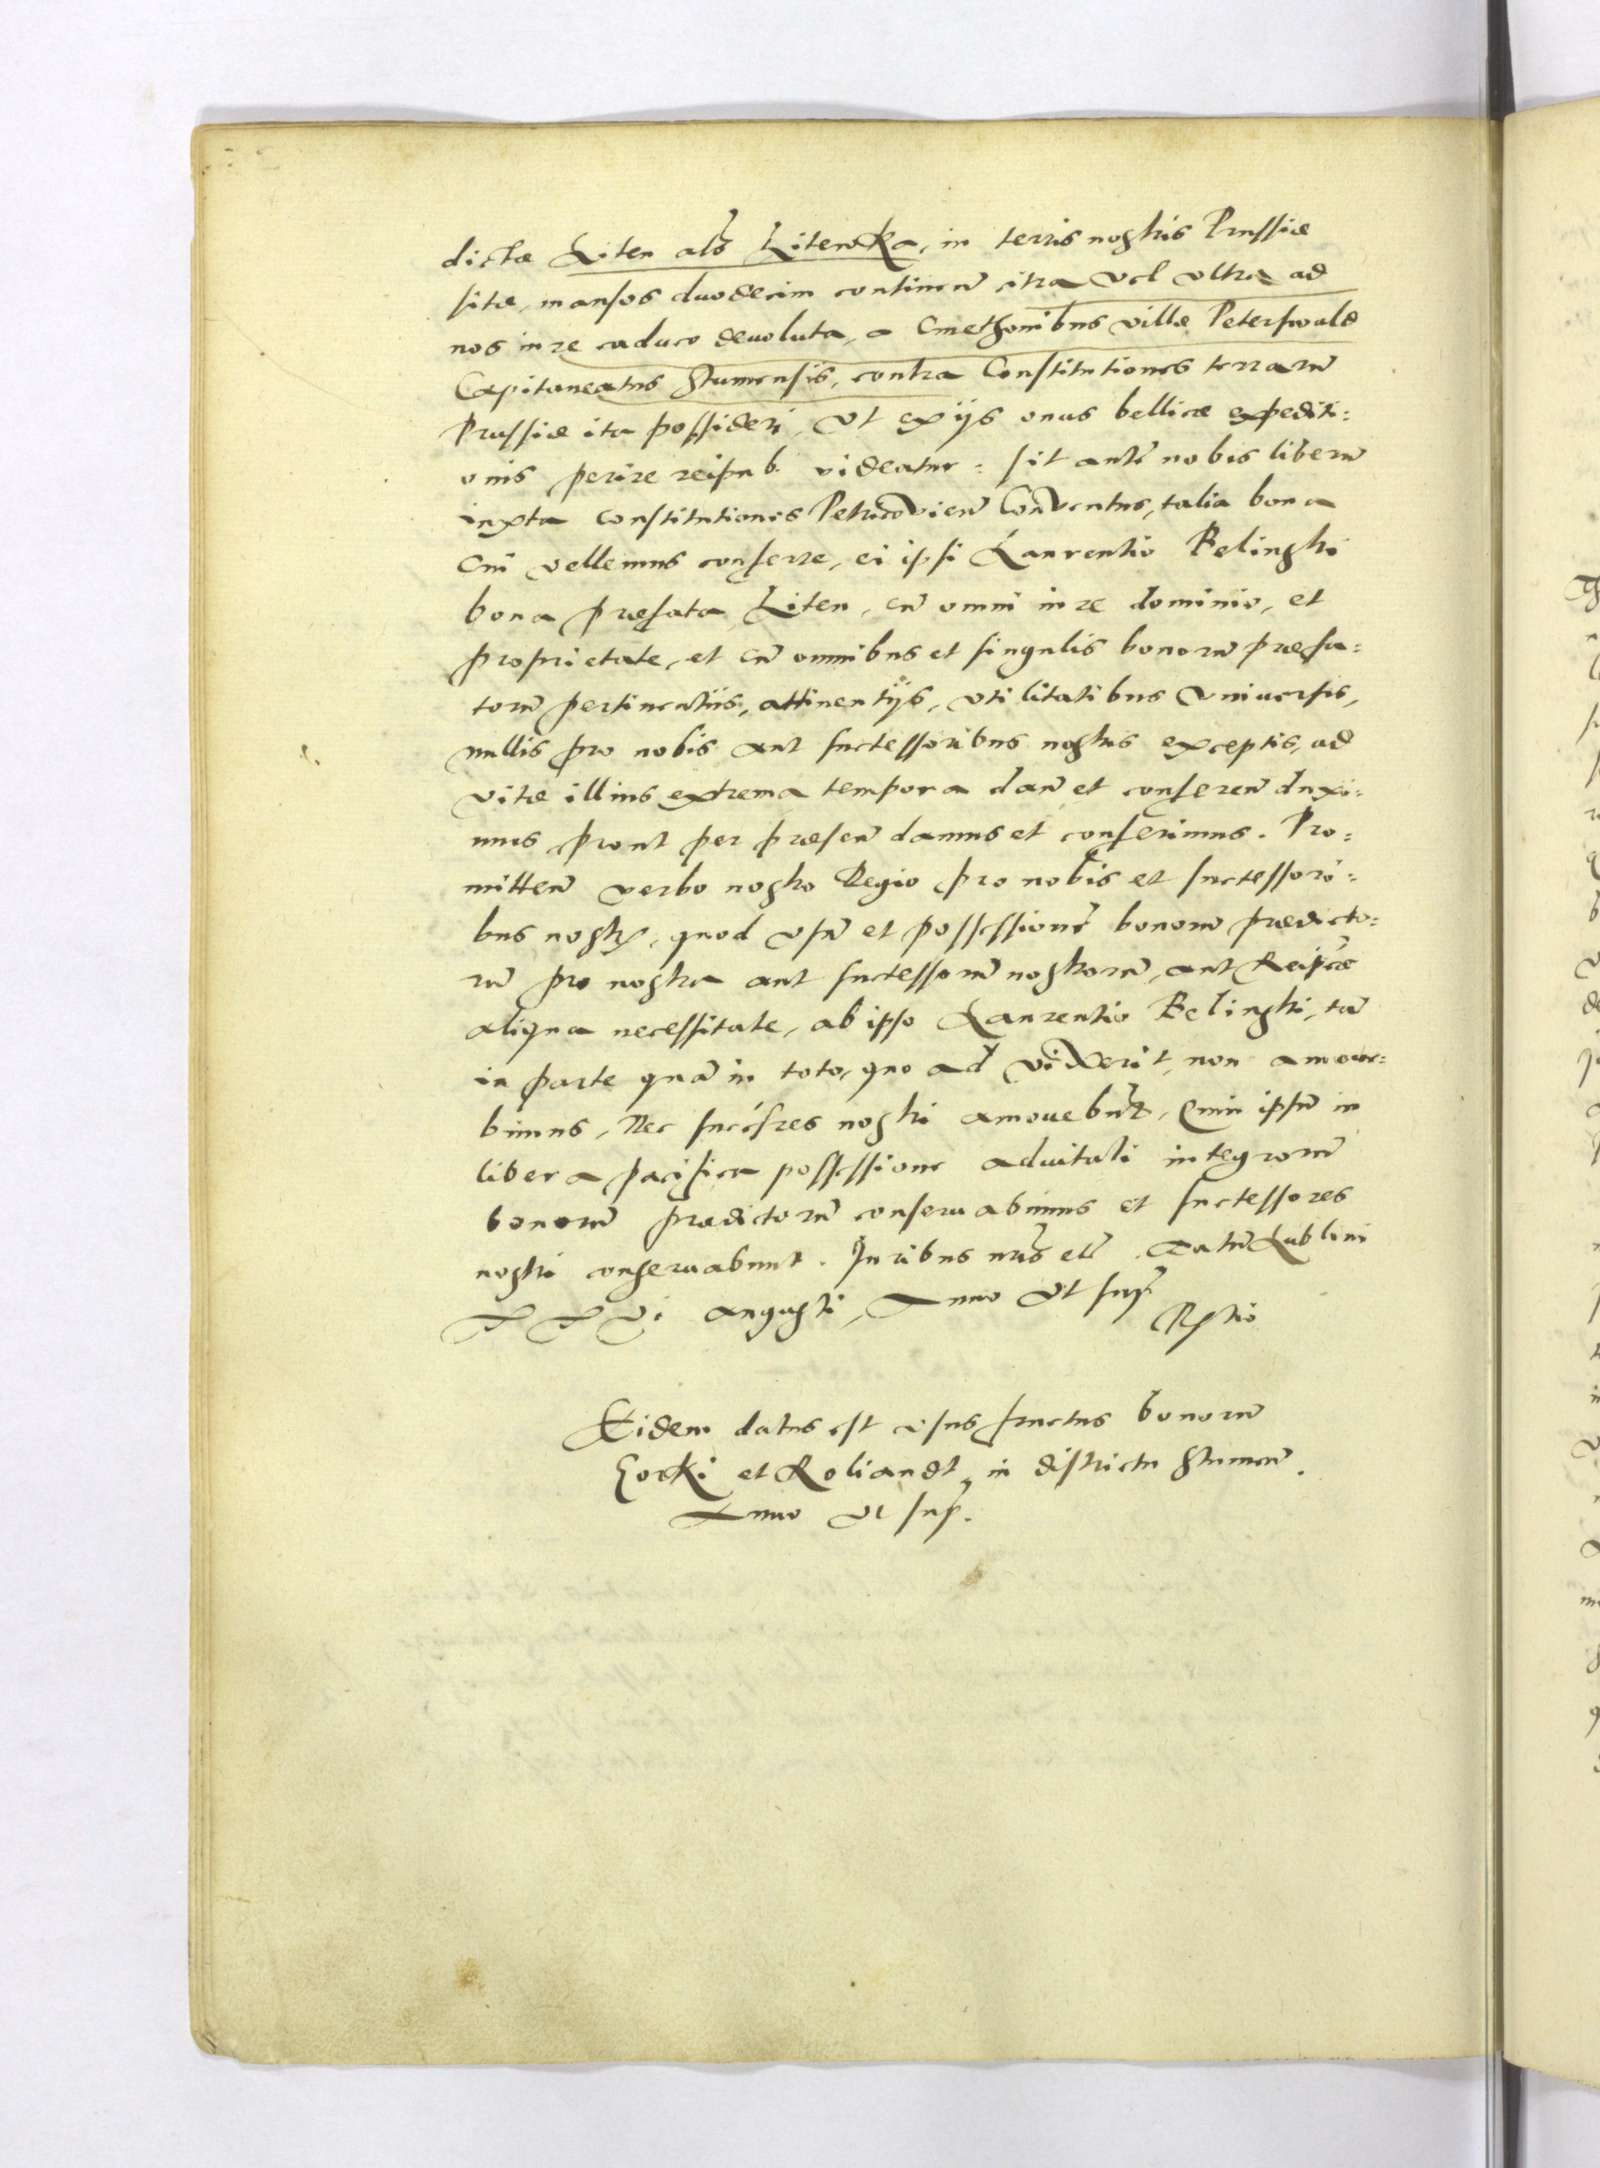 dictæ Liten als Litewka, in terris nostris Prussiæ
sitæ, mansos duodecim continen̄ citra vel vltra ad
nos iure caduco deuoluta, a Cmethonibus villæ Peterswald
Capitaneatus Stumensis, contra Constitutiones terrarū
Prussiæ ita possideri, vt ex ijs onus bellicæ expediti=
onis perire reipub. videatur: sit autē nobis liberū
iuxta constitutiones Petricovien̄ Conventus, talia bona
cui vellemus conferre, ei ipsi Laurentio Belinski
bona præfata Liten, cū omni iure dominio, et
proprietate, et cū omnibus et singulis bonorū præfa=
torū pertinentiis, attinentijs, vtilitatibus vniuersis,
nullis pro nobis aut successoribus nostris exceptis, ad
vitæ illius extrema tempora dan̄ et conferen̄ duxi=
mus prout per præsen̄ damus et conferimus. Pro=
mitten̄ verbo nostro Regio pro nobis et successori=
bus nostris, quod vsū et possessionē bonorū prædicto=
rū pro nostra aut successorū nostrorū, aut Reip̄cæ
aliqua necessitate, ab ipso Laurentio Belinski, tā
in parte quā in toto, quo ad vixerit, non amoue=
bimus, Nec succēsres nostri amouebūt, Quin ipsū in
libera pacifica possessione aduitali integrorū
bonorū prædictorū conseruabimus et successores
nostri conseruabunt. Iuribus nr̄is etc̄. Datū Lublini
XXVi augusti, Anno vt sup̄

Eidem datus est vsusfructus bonorū
Gorki et Roliandt, in districtu Stumen̄.
Anno vt sup̄.